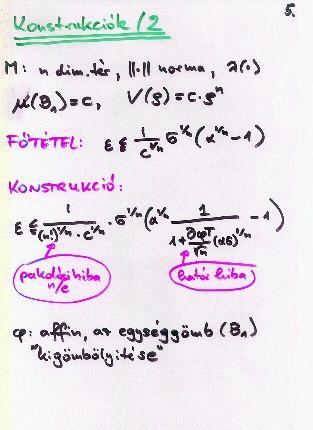 5.
Konstrukciók /2
M: n dim. tér, ||·|| norma, λ(·)
μ(B₁) = c, V(ρ) = c·ρⁿ
FŐTÉTEL: ε ≤ 1/c^{1/n} σ^{1/n} (α^{1/n} - 1)
KONSTRUKCIÓ:
ε ≤ 1/((n!)^{1/n} · c^{1/n}) · σ^{1/n} (α^{1/n} 1/(1 + ∂φT/√n (ασ)^{1/n}) - 1)
pakolási hiba határhiba
n/e
φ: affin, az egységgömb (B₁)
"kigömbölyítése"